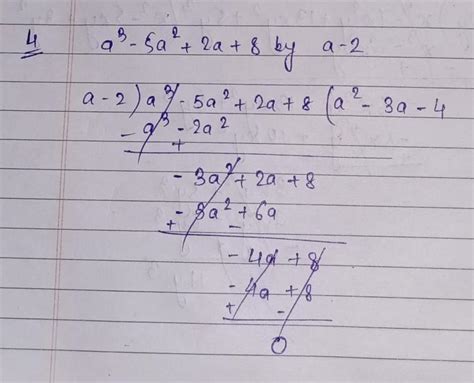 4 a³ - 5a² + 2a + 8 by a - 2
a - 2 ) a³ - 5a² + 2a + 8 ( a² - 3a - 4
- a³ - 2a²
+
- 3a² + 2a + 8
- 3a² + 6a
+ -
- 4a + 8
- 4a + 8
+ -
0